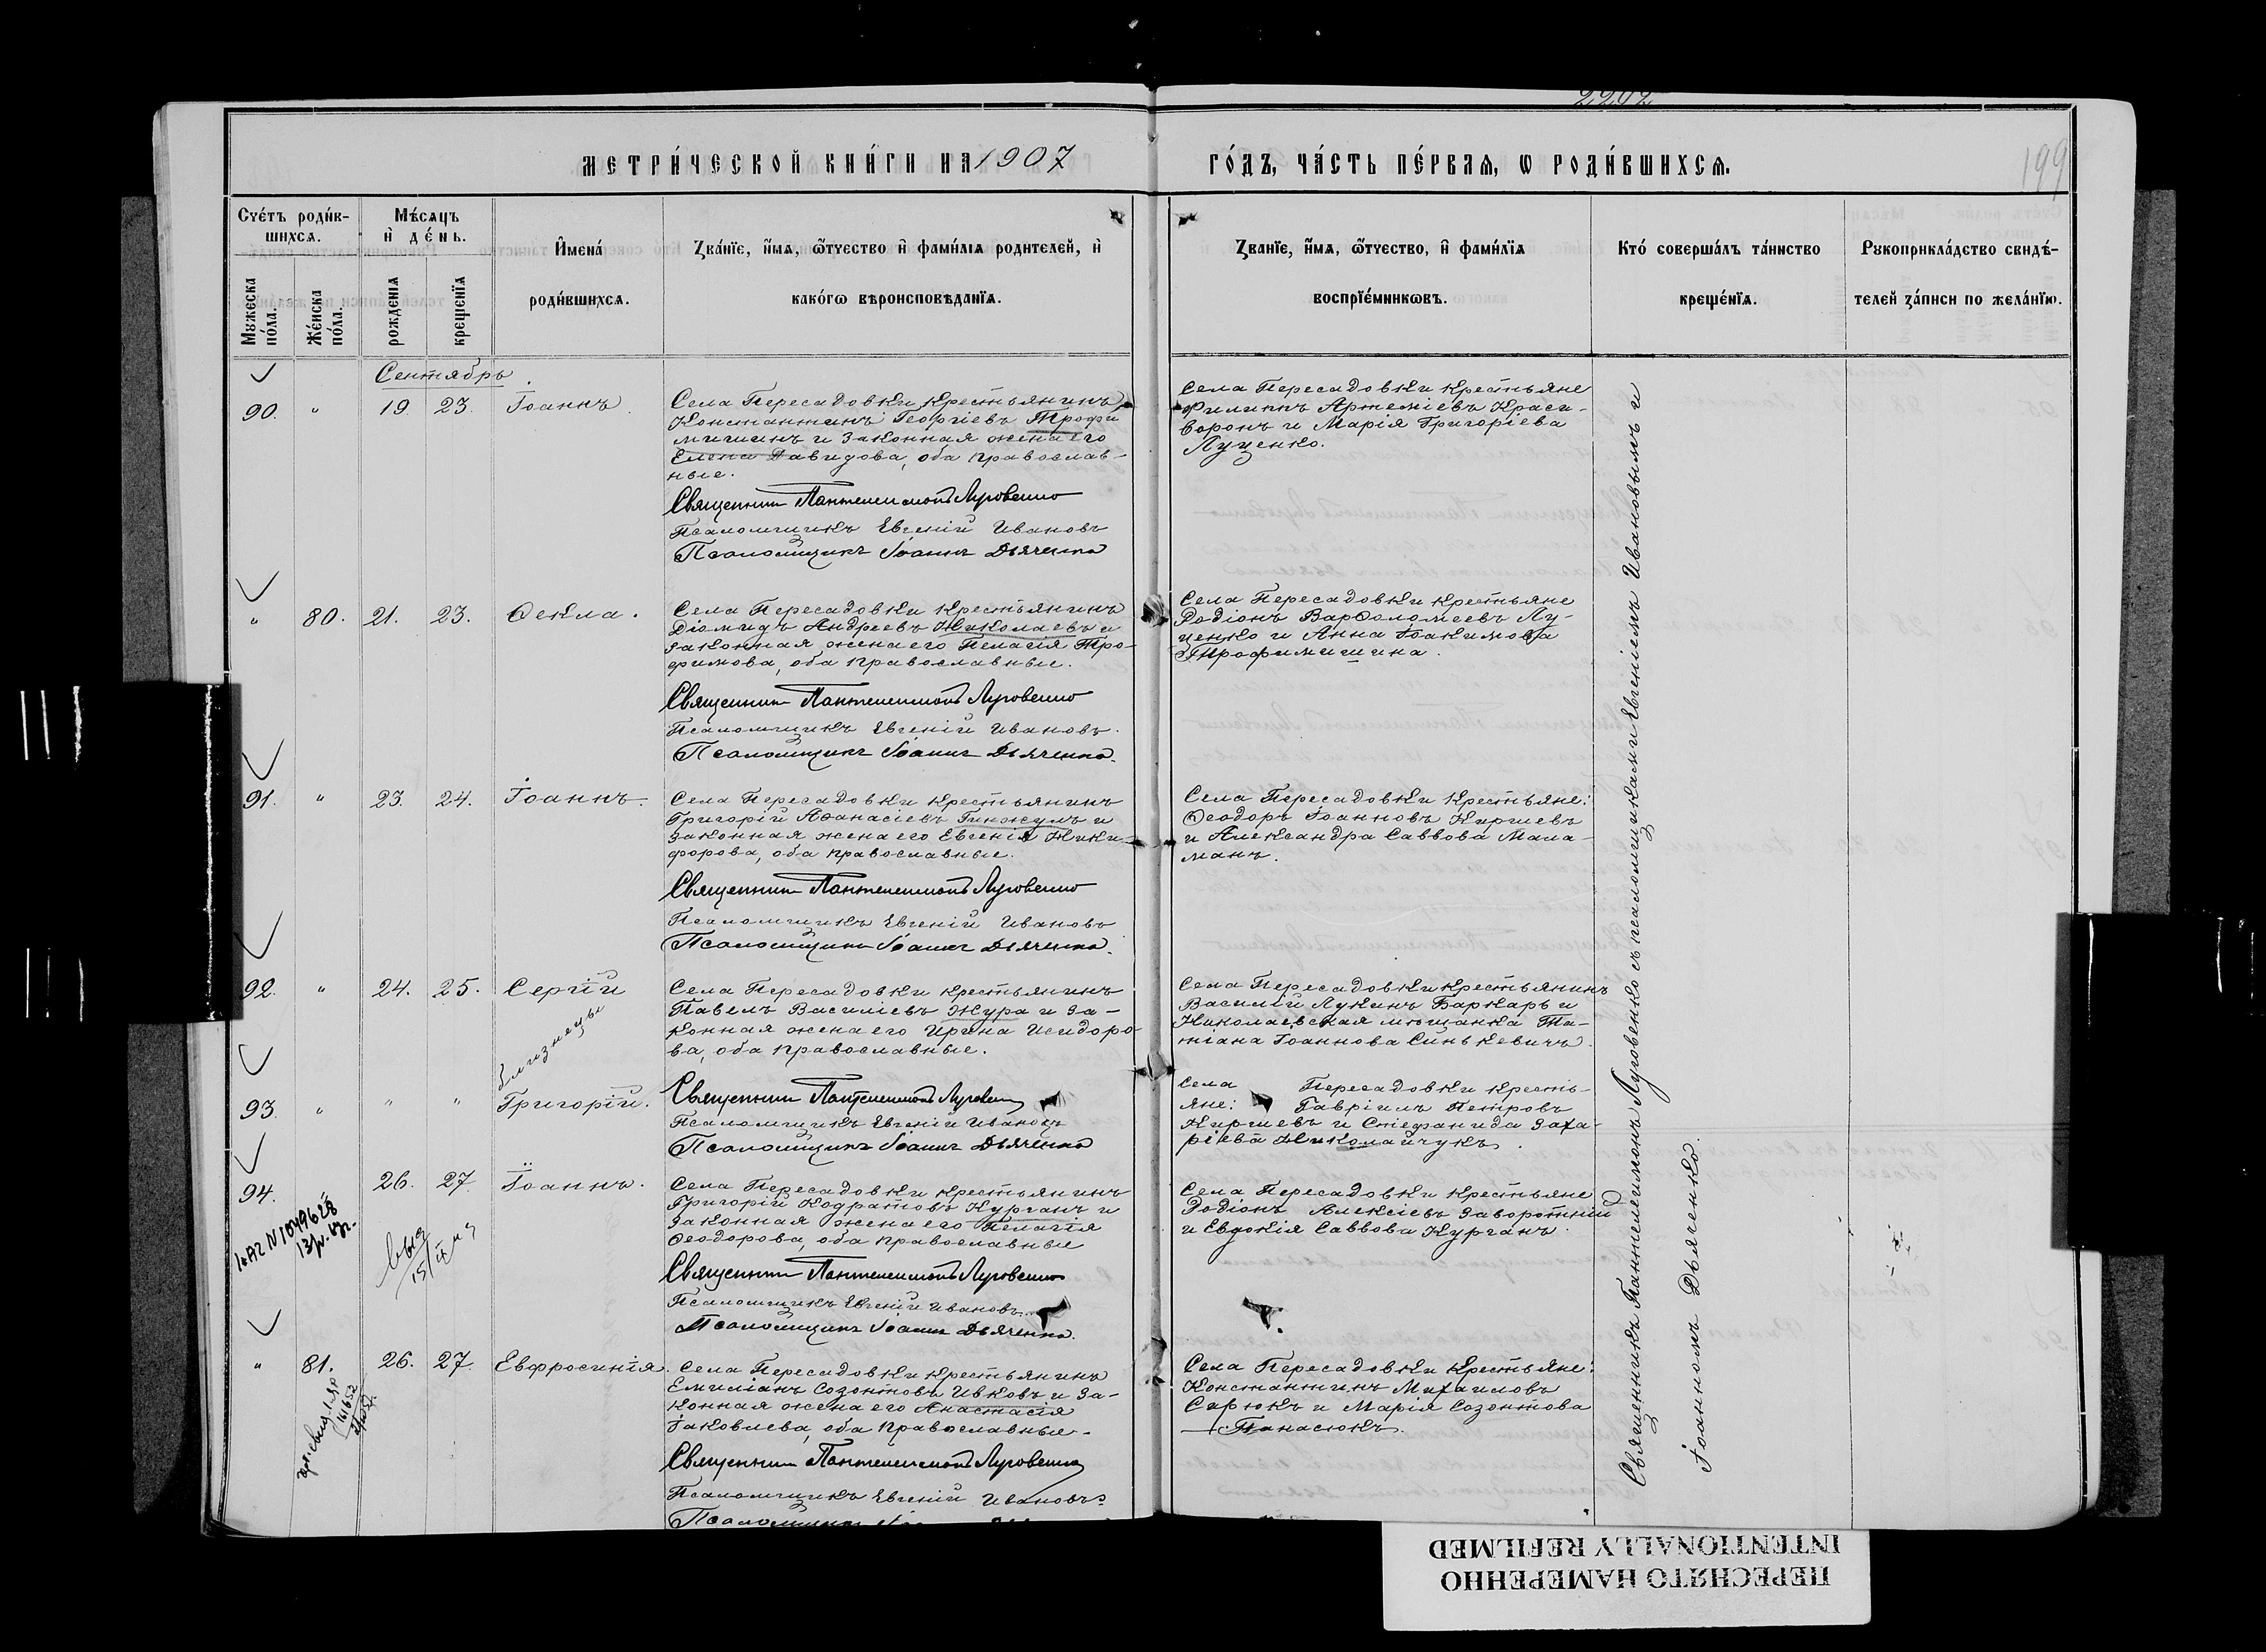 2202
МЕТРИ́ЧЕСКОЙ КНИ́ГИ НА 1907
ГО́ДЪ, ЧА́СТЬ ПЕ́РВАЯ, Ѡ РОДИ́ВШИХСЯ.
199
Сче́тъ роди́в-
шихся.
Мужеска по́ла.
Же́нска по́ла.
Мѣ́сяцъ
и де́нь.
рожденія
крещенїя
Имена́
роди́вшихся.
Зва́нїе, и́мя, ѻ҆́тчество и фамилїя родителей, и
како́гѡ вѣроисповѣданїя.
Званїе, и́мя, ѻ҆́тчество, и фами́лїя
воспрїе́мниковъ.
Кто́ соверша́лъ та́инство
креще́нїя.
Рукоприкла́дство свидѣ́-
телей за́писи по жела́нїю.
Сентябрь.
90. " 19. 23. Іоаннъ.
Села Пересадовки крестьянинъ
Константинъ Георгіевъ Трофи
мишинъ и законная жена его
Елена Давидова, оба православ-
ные.
Священникъ Пантелеимонъ Луговенко
Псаломщикъ Евгеній Ивановъ
Псаломщикъ Іоаннъ Дьяченко
Села Пересадовки крестьяне
Филиппъ Артеміевъ Краси-
воронъ и Марія Григоріева
Луценко.
" 80. 21. 23. Ѳекла.
Села Пересадовки крестьянинъ
Діомидъ Андреевъ Николаевъ и
законная жена его Пелагія Тро-
фимова, оба православные.
Священникъ Пантелеимонъ Луговенко
Псаломщикъ Евгеній Ивановъ.
Псаломщикъ Іоаннъ Дьяченко.
Села Пересадовки крестьяне
Родіонъ Варѳоломеевъ Лу-
ценко и Анна Іоакимова
Трофимишина.
91. " 23. 24. Іоаннъ.
Села Пересадовки крестьянинъ
Григорій Аѳанасіевъ Гинжулъ и
законная жена его Евгенія Ники-
форова, оба православные.
Священникъ Пантелеимонъ Луговенко
Псаломщикъ Евгеній Ивановъ
Псаломщикъ Іоаннъ Дьяченко.
Села Пересадовки крестьяне:
Ѳеодоръ Іоанновъ Киріевъ
и Александра Саввова Мала-
манъ.
92. " 24. 25. Сергій
близнецы
Села Пересадовки крестьянинъ
Павелъ Василіевъ Жура и за-
конная жена его Ирина Исидоро-
ва, оба православные.
Села Пересадовки крестьянинъ
Василій Лукинъ Баркарь и
Николаевская мѣщанка Та-
тіана Іоаннова Синькевичъ.
93. " " " Григорій.
Священникъ Пантелеимонъ Луговенко
Псаломщикъ Евгеній Ивановъ
Псаломщикъ Іоаннъ Дьяченко
Села Пересадовки кресть-
яне: Гавріилъ Петровъ
Киріевъ и Стефанида Заха-
ріева Николайчукъ.
94. 26. 27. Іоаннъ.
Села Пересадовки крестьянинъ
Григорій Кодратовъ Курганъ и
законная жена его Пелагія
Ѳеодорова, оба православные
Священникъ Пантелеимонъ Луговенко
Псаломщикъ Евгеній Ивановъ.
Псаломщикъ Іоаннъ Дьяченко.
Села Пересадовки крестьяне
Родіонъ Алексіевъ Заворотній
и Евдокія Саввова Курганъ.
" 81. 26. 27. Евфросинія.
Села Пересадовки крестьянинъ
Емиліанъ Созонтовъ Ивковъ и за-
конная жена его Анастасія
Іаковлева, оба православные.
Священникъ Пантелеимонъ Луговенко
Псаломщикъ Евгеній Ивановъ
Псаломщикъ
Села Пересадовки крестьяне:
Константинъ Михаиловъ
Сирюкъ и Марія Созонтова
Панасюкъ.
Священникъ Пантелеимонъ Луговенко съ псаломщиками Евгеніемъ Ивановымъ и
Іоанномъ Дьяченко.
ПЕРЕСНЯТО НАМЕРЕННО
INTENTIONALLY REFILMED